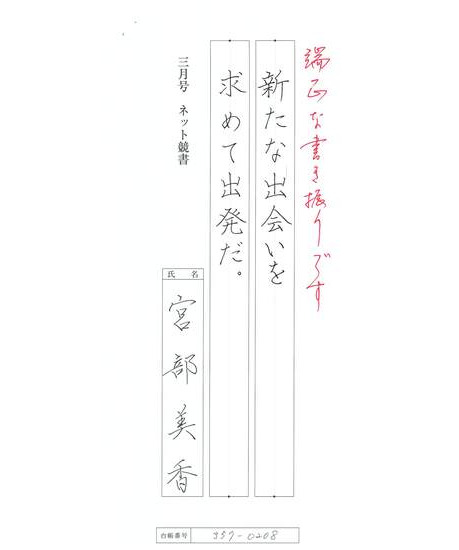 端正な書き振りです
新たな出会いを
求めて出発だ。
三月号 ネット競書
氏名
宮部美香
台紙番号
357-0208